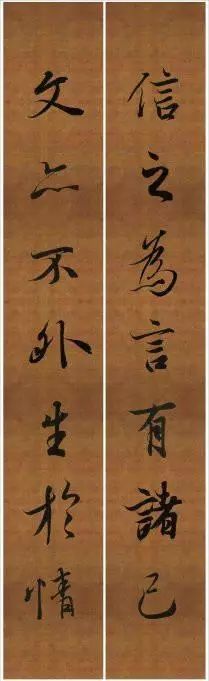 信之為言有諸己
文亦不外生於情